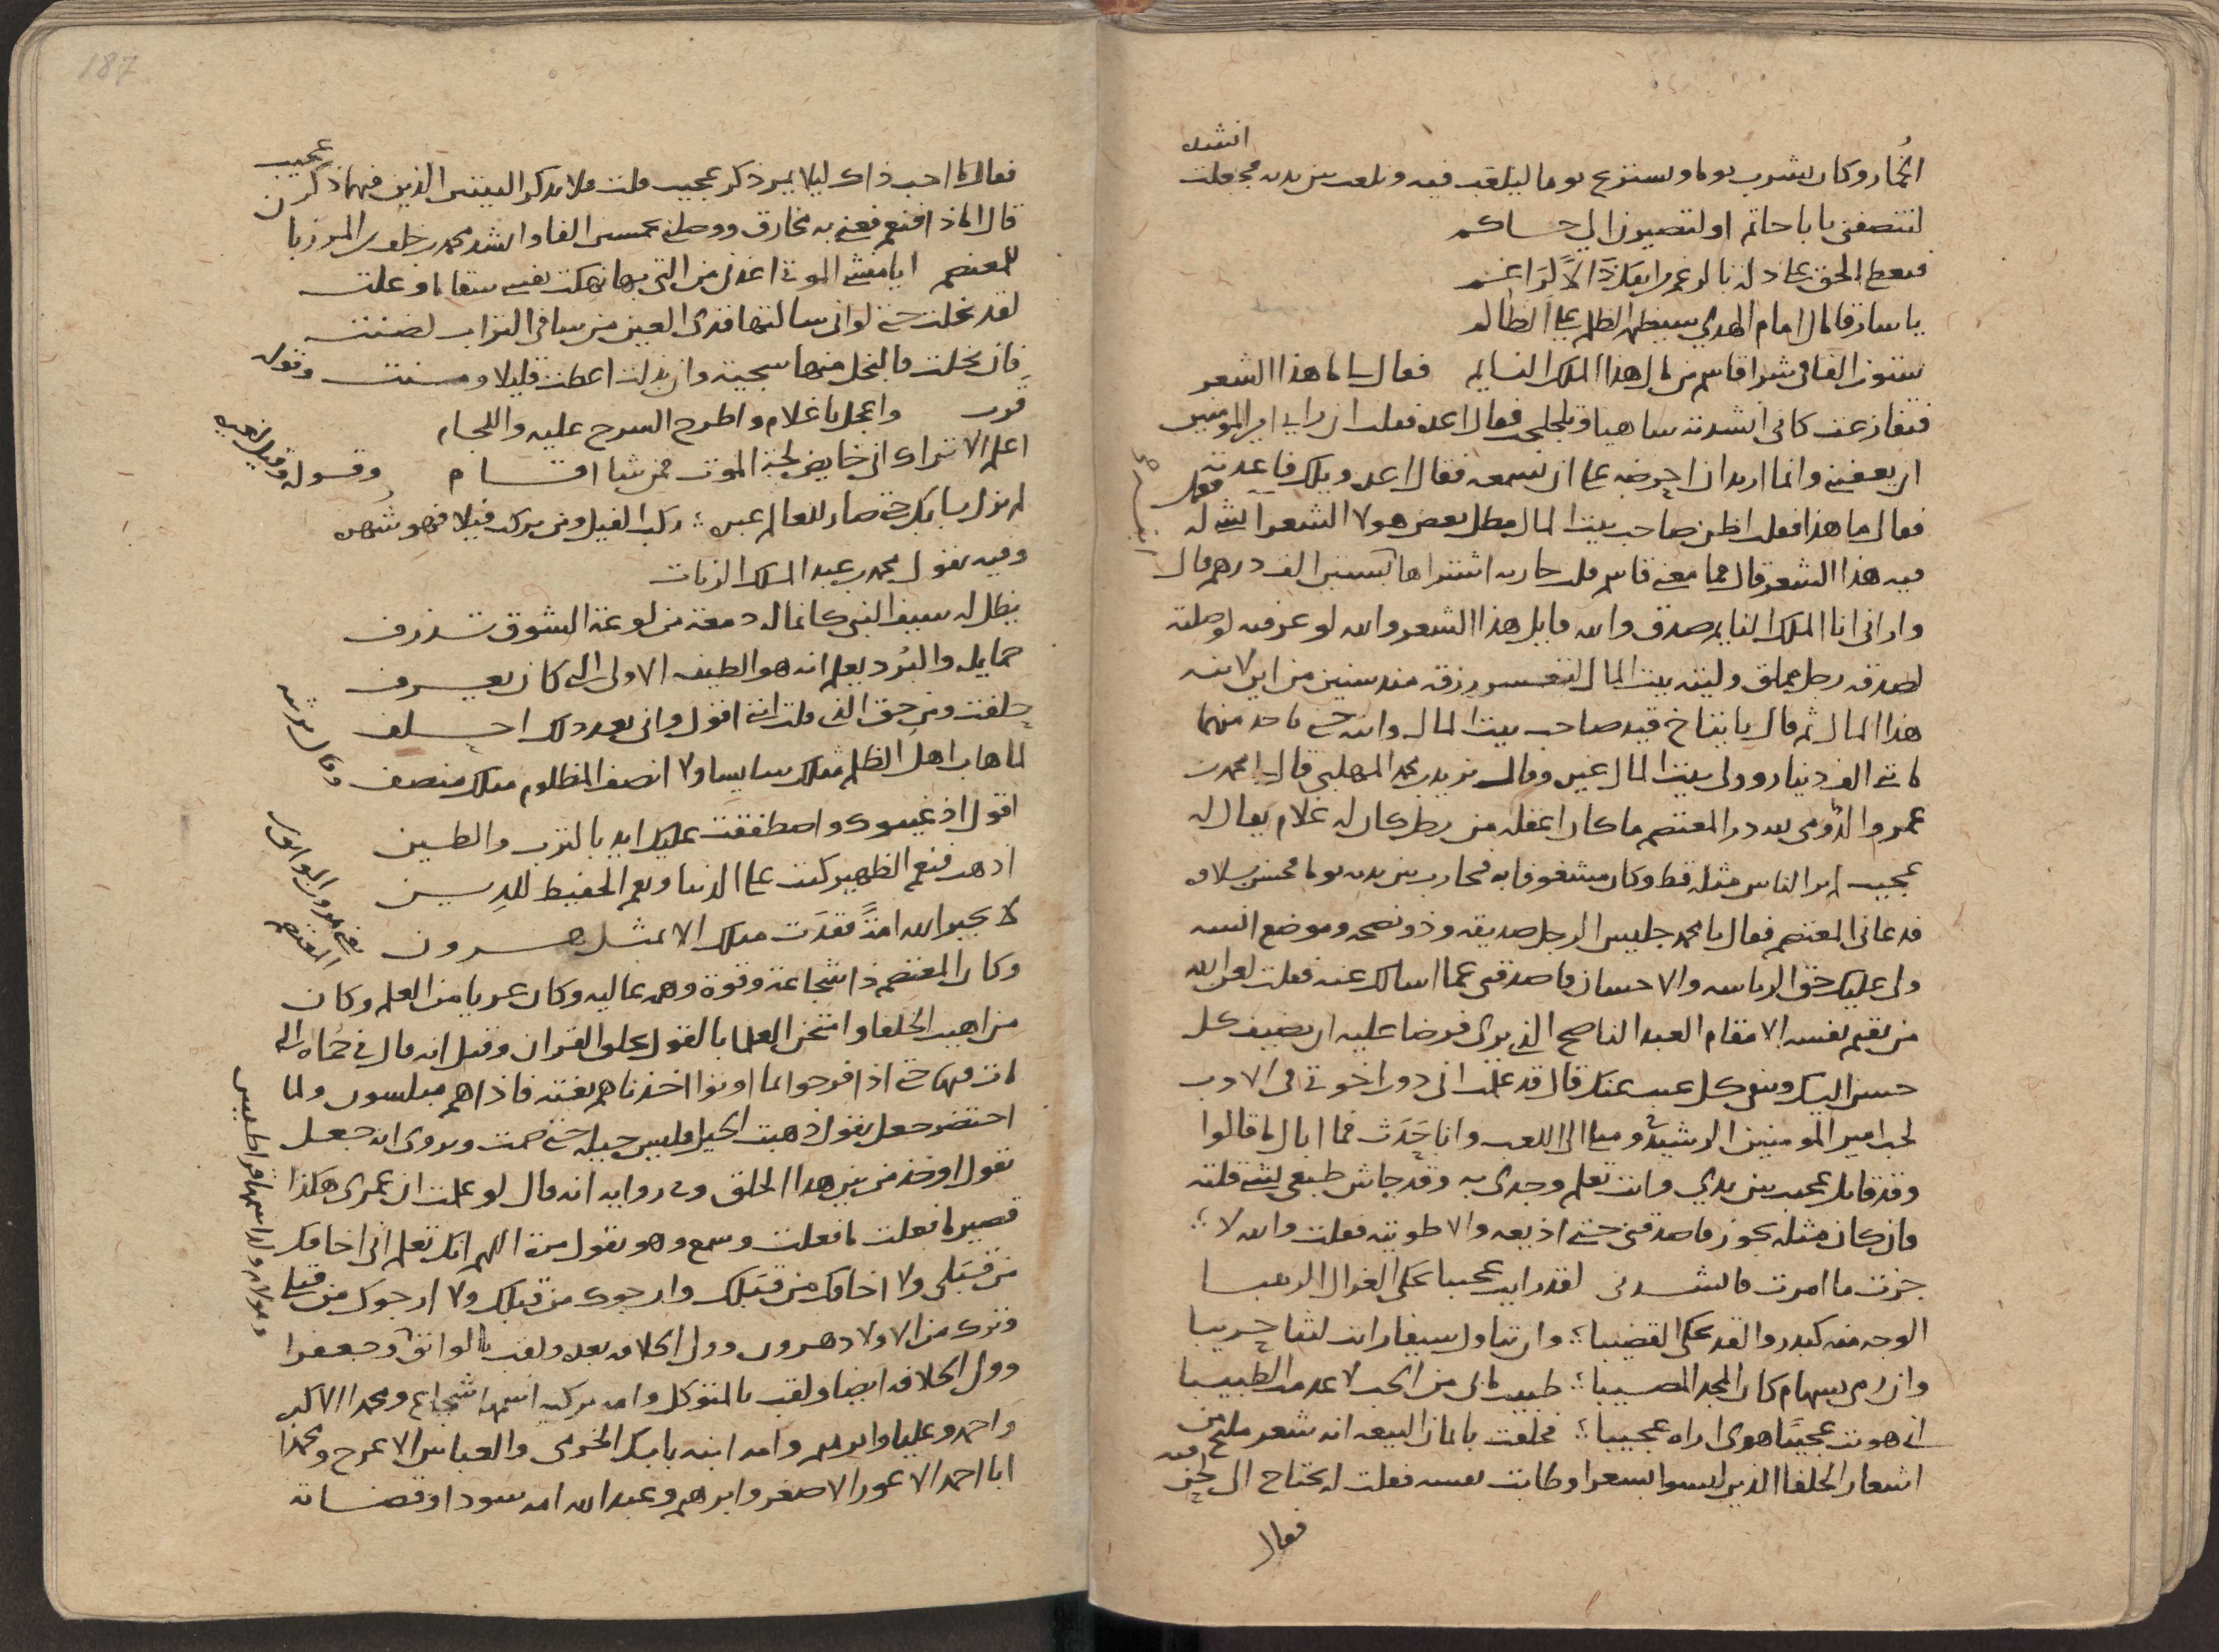 انشده
الخمار وكان يشرب يوما ويستريح يوما ليلعب فيه ويلعب بين يديه فجعلت
لتنصفني يا با حاتم او لتصيرن الي حاكم
فيعطى الحق على ذله بالرغم راغم
يا سارقا مال امام الهدى سيظهر الظلم على الظالم
ستون الفا في شرا قاسم من مال هذا الملك النايم فقال لي ما هذا الشعر
فتفازعت كاني انشدته ساهيا وتلجلجت فقال اعده فقلت ان راى امير المومنين
ان يعفيني وانما اريد ان احرضه على ان يسمعه فقال اعده ويلك فاعدته
فقال ما هذا فقلت اظن صاحب بيت المال مطل بعض هولا الشعرا بشي له فعمل
فيه هذا الشعر قال فما معنى قاسم قلت جاريه اشتراها بستين الف درهم قال
واراني انا الملك النايم صدق والله قايل هذا الشعر والله لو عرفته لوصلته
لصدقه رجل مملق وليته بيت المال رزقه منذ سنين من اين لابنه
هذا المال ثم قال يا يتاخ قيد صاحب بيت المال وابنه حتى تاخذ منهما
ماتي الف دينار وولى بيت المال غيره وقال يزيد بن محمد المهلبي قال لي محمد بن
عمرو الرومي لله در المعتصم ما كان اعقله من رجل كان له غلام يقال له
عجيب لم ير الناس مثله قط وكان مشغوفا به فحارب بين يديه يوما فحسن بلاوه
فدعاني المعتصم فقال يا محمد جليس الرجل صديقه وذو نصحه وموضع انسه
ولي عليك حق الرياسه والاحسان فاصدقني عما اسالك عنه فقلت لعن الله
من يقيم نفسه الا مقام العبد الناصح الذي يرى فرضا عليه ان يضيف كل
حسن اليك وينفي كل عيب عنك قال قد علمت اني دون اخوتي في الادب
لحب امير المومنين الرشيد لي وميلي الى اللعب وانا حدث فما انال ما قالوا
وقد قاتل عجيب بين يدي وانت تعلم وجدي به وقد جاش طبعي بشي قلته
فان كان مثله يجوز فاصدقني حتى اذيعه والا طويته فقلت والله لا
جزت ما امرت فانشدني لقد رايت عجيبا يحكي الغزال الربيبا
الوجه منه كبدر والقد يحكي القضيبا وان تناول سيفا رايت ليثا حريبا
وان رمى بسهام كان المجد المصيبا طبيب ما بي من الحب لا عدمت الطبيبا
اني هويت عجيبا هوى اراه عجيبا فحلفت بايمان البيعه انه شعر مليح من
اشعار الخلفا الذين ليسوا بشعرا وطابت نفسه فقلت له يحتاج الى لحن فيه
فقال
187
فقال ما احب ذاك ليلا يمر ذكر عجيب قلت فلا يذكر البيتين الذين فيهما ذكر عجيب
قال اما ذا فنعم فغنى به مخارق ووصلني بخمسين الفا وانشد محمد بن خلف بن المرزبان
للمعتصم ايا منشي الموتى اعذني من التي بها نهكت نفسي سقاما وعلت
لقد بخلت حتى لو اني سالتها قذى العين من سافي التراب لضنت
فان بخلت فالبخل منها سجية وان بذلت اعطت قليلا ومنت وقوله
قرب واعجل يا غلام واطرح السرج عليه واللجام
اعلم الاتراك اني خايض لجة الموت فمن شا اقام وقوله وقيل لغيره
لم يزل بابك حتى صار للعالم عبره ركب الفيل ومن يركب فيلا فهو شهره
وفيه يقول محمد بن عبد الملك الزيات
يظل له سيف النبي كانما له دمعة من لوعة الشوق تذرف
حمايله والبرد يعلم انه هو الطيف الاولى الذي كان يعرف
حلفت ومن حق الذي قلت انني اقول واني بعد ذلك احلف
لما هاب اهل الظلم مثلك سايسا ولا انصف المظلوم مثلك منصف وقال يرثيه
اقول اذ غيبوك واصطفقت عليك ايد بالترب والطين
اذهب فنعم الظهير كنت على الدنيا ونعم الحفيظ للدين
لا يجبر الله امة فقدت مثلك الا بمثل هرون
يعني هرون الواثق بن المعتصم
وكان المعتصم ذا شجاعة وقوة وهمه عاليه وكان عريا من العلم وكان
من اهيب الخلفا وامتحن العلما بالقول بخلق القران وقيل انه قال في حماه التي
مات فيها حتى اذا فرحوا بما اوتوا اخذناهم بغتة فاذا هم مبلسون ولما
احتضر جعل يقول ذهبت الحيل فليس حيله حتى صمت ويروى انه جعل
يقول اوخذ من بين هذا الخلق وفي روايه انه قال لو علمت ان عمري هكذا
قصير ما فعلت ما فعلت وسمع وهو يقول اللهم انك تعلم اني اخافك
من قبلي ولا اخافك من قبلك وارجوك من قبلك ولا ارجوك من قبلي
وترك من الاولاد هرون وولي الخلافه بعده ولقب بالواثق وجعفرا
وولي الخلافه ايضا ولقب بالمتوكل وامه تركيه اسمها شجاع ومحمدا الاكبر
واحمد وعليا وابرهيم وامه ابنه بابك الخرمي والعباس الاعرج ومحمدا
ابا احمد الاعور الاصغر وابرهيم وعبد الله امه سودا وقضاته